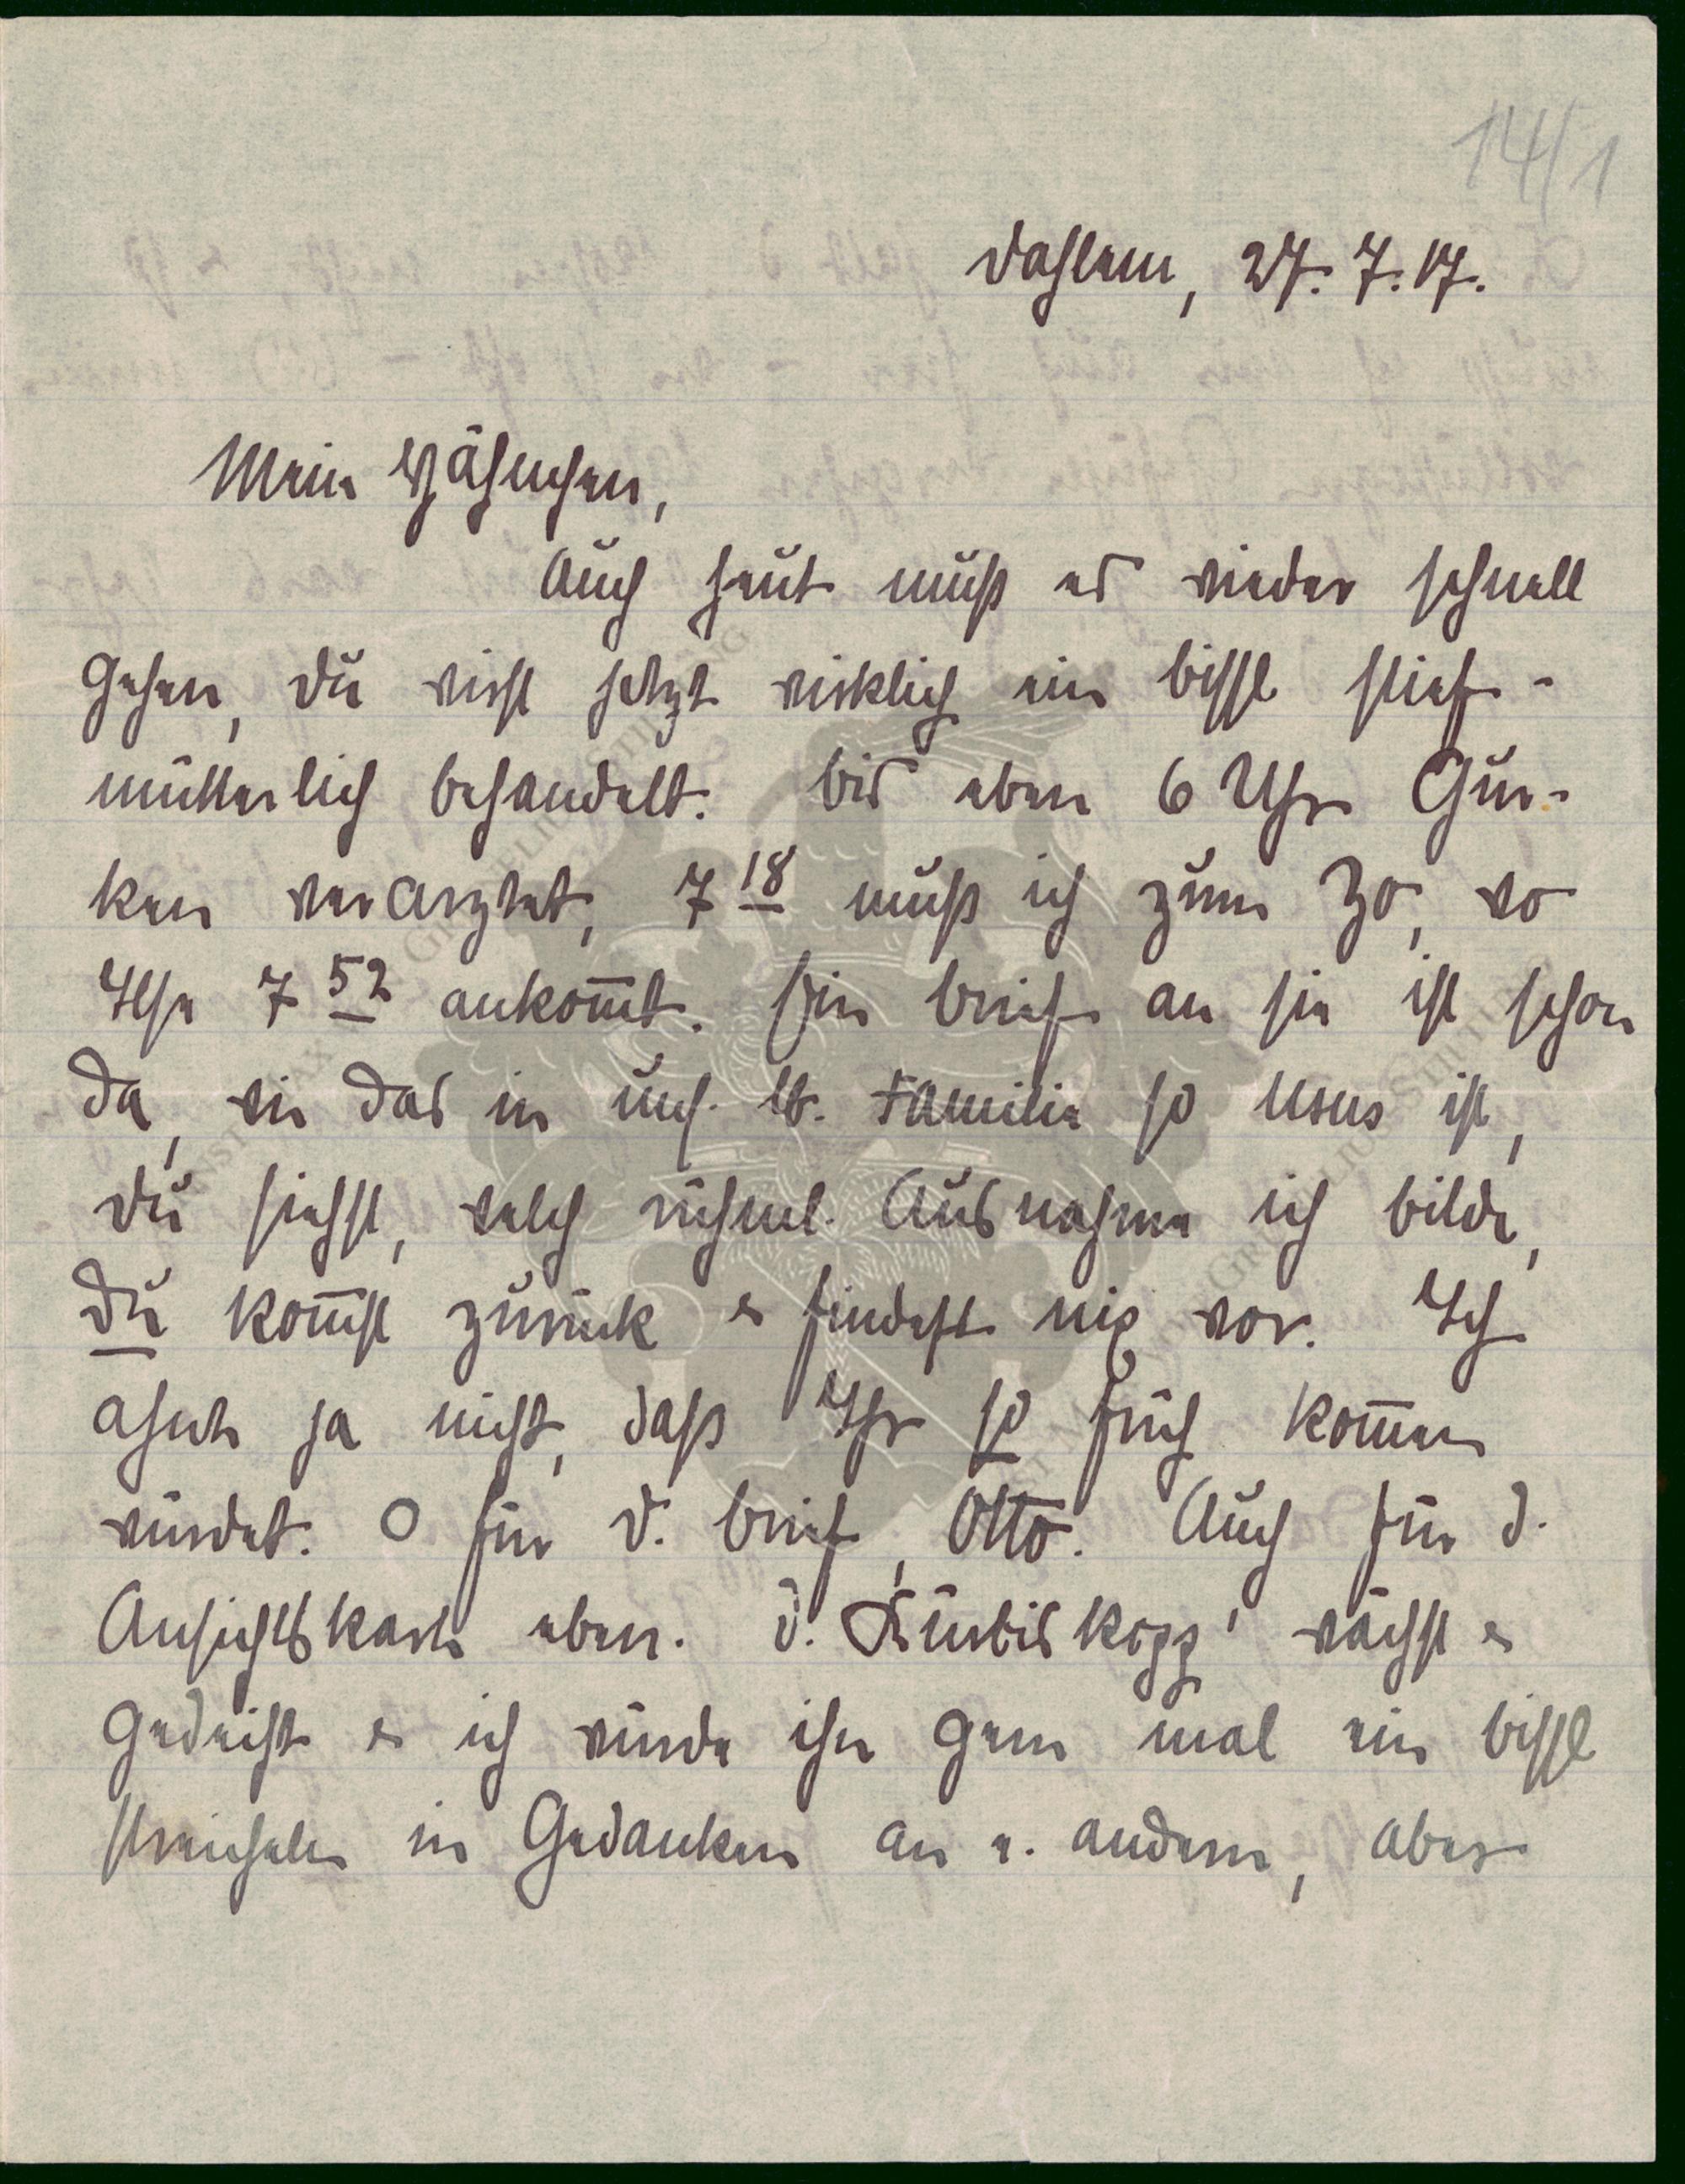 14/1
Dahlem, 27. 7. 17.
Mein Hähnchen,
Auch heut muß es wieder schnell
gehen, Du wirst jetzt wirklich ein bissl stief-
mütterlich behandelt. Bis eben 6 Uhr Gur-
ken verarztet, 7 18 muß ich zum Zo, wo
Ilse 7 52 ankom̅t. Ein Brief an sie ist schon
da, wie das in uns. lb. Familie so Usus ist,
Du siehst, welch rühml. Ausnahme ich bilde,
Du kom̅st zurück & findest nix vor. Ich
ahnte ja nicht, daß Ihr so früh kom̅en
würdet. O für d. Brief, Otto. Auch für d.
Ansichtskarte eben. D. Kürbiskopp' wächst &
gedeiht & ich würde ihn gern mal ein bissl
streicheln in Gedanken an e. andern, aber